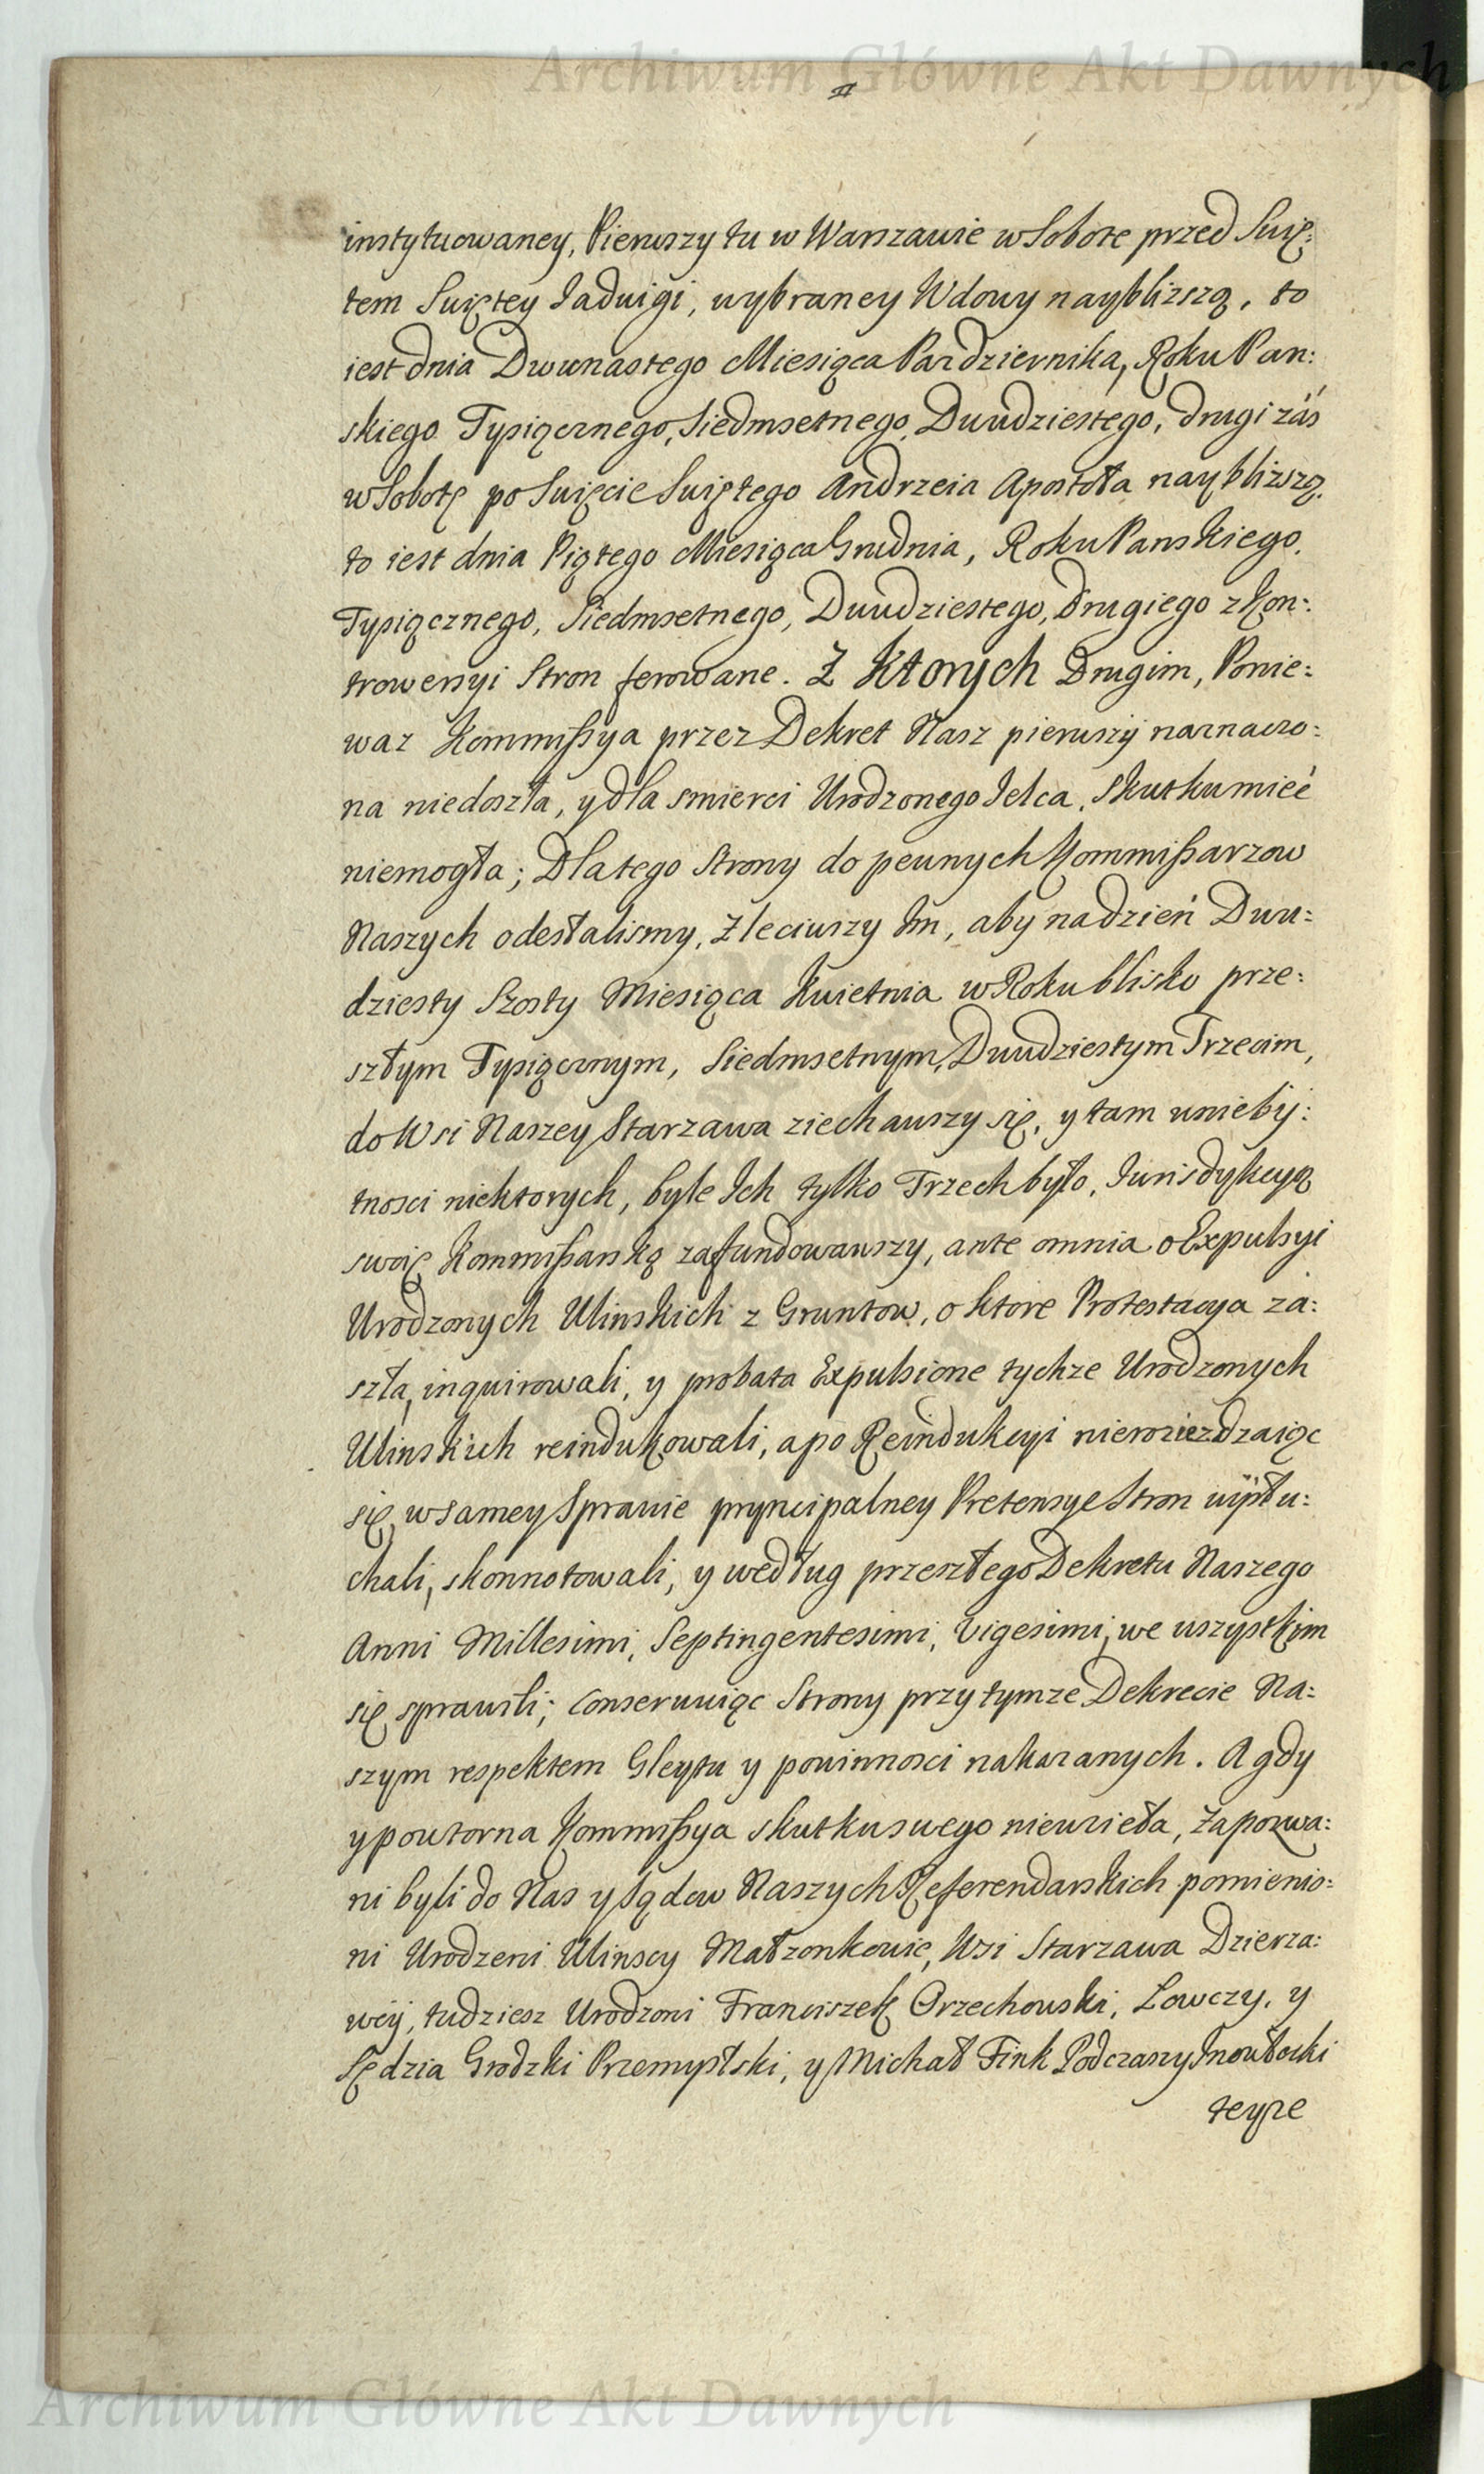 Archiwum Główne Akt Dawnych
instytuowaney, Pierwszy tu w Warszawie w Sobotę przed Swię:
tem Swiętey Jadwigi, wybraney Wdowy nayblizszą, to
iest dnia Dwunastego Miesiąca Pazdziernika, Roku Pan:
skiego Tysiącznego, Siedmsetnego, Dwudziestego, drugi záś
w Sobotę po Swięcie Swiętego Andrzeia Apostoła nayblizszą,
to iest dnia Piątego Miesiąca Grudnia, Roku Panskiego,
Tysiącznego, Siedmsetnego, Dwudziestego, Drugiego z Kon:
trowersyi Stron ferowane. Z Ktorych Drugim, Ponie:
waz Kommißya przez Dekret Nasz pierwszy naznaczo:
na niedoszła, y dla smierci Urodzonego Jelca, Skutku mieć
niemogła; Dlatego Strony do pewnych Kommißarzow
Naszych odesłalismy, Zleciwszy Im, aby na dzień Dwu:
dziesty Szosty Miesiąca Kwietnia w Roku blisko prze:
szłym Tysiącznym, Siedmsetnym, Dwudziestym Trzecim,
do Wsi Naszey Starzawa ziechawszy się, y tam w niebÿ:
tnosci niektorych, byle Ich tylko Trzech było, Jurisdykcyą
swoię Kommißarską zafundowawszy, ante omnia o Expulsyi
Urodzonych Ulinskich z Gruntow, o ktore Protestacya za:
szła, inquirowali, y probata Expulsione tychze Urodzonych
Ulinskich reindukowali, a po Reindukcyi nieroziezdzaiąc
się, w samey Sprawie pryncipalney Pretensye Stron wÿsłu:
chali, skonnotowali, y według przeszłego Dekretu Naszego
Anni Millesimi, Septingentesimi, Vigesimi, we wszystkim
się sprawili; Conserwuiąc Strony przy tymze Dekrecie Na:
szym respektem Gleytu y powinnosci nakazanych. A gdy
y powtorna Kommißya skutku swego niewzieła, Zapozwa:
ni byli do Nas y Sądow Naszych Referendarskich pomienio:
ni Urodzeni Ulinscy Małzonkowie, Wsi Starzawa Dzierza:
wcÿ, tudziesz Urodzoni Franciszek Orzechowski, Łowczy, y
Sędzia Grodzki Przemyslski, y Michał Fink Podczaszy Inowłocki
teyze
Archiwum Główne Akt Dawnych